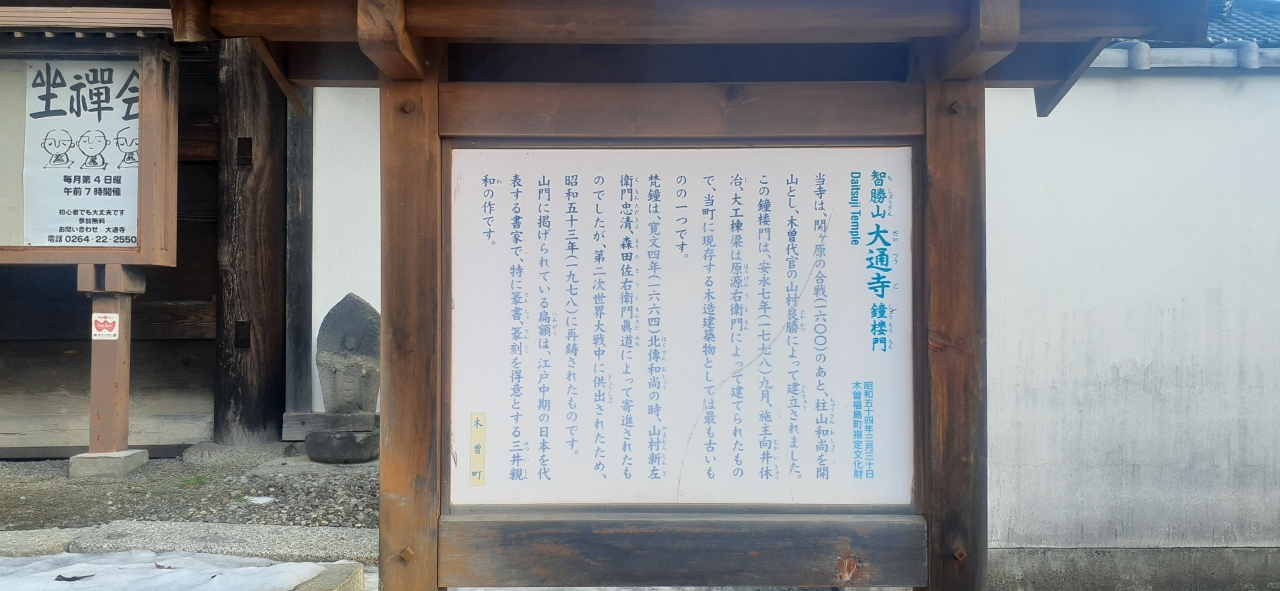 智勝山 大通寺 鐘楼門
Daitsuji Temple
昭和五十四年三月三十日
木曽福島町指定文化財
当寺は、関ヶ原の合戦(一六〇〇)のあと、桂山和尚を開
山とし、木曽代官の山村良勝によって建立されました。
この鐘楼門は、安永七年(一七七八)九月、施主向井休
冶、大工棟梁は原源右衛門によって建てられたもの
で、当町に現存する木造建築物としては最も古いも
のの一つです。
梵鐘は、寛文四年(一六六四)北傳和尚の時、山村新左
衛門忠清、森田佐右衛門眞道によって寄進されたも
のでしたが、第二次世界大戦中に供出されたため、
昭和五十三年(一九七八)に再鋳されたものです。
山門に掲げられている扁額は、江戸中期の日本を代
表する書家で、特に篆書、篆刻を得意とする三井親
和の作です。
木曽町
坐禪会
毎月第4日曜
午前7時開催
初心者でも大丈夫です
参加無料
お問い合わせ 大通寺
電話 0264-22-2550